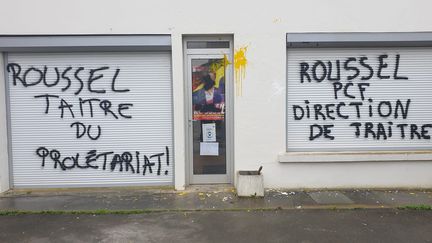 ROUSSEL
TAITRE
DU
PROLÉTARIAT!
ROUSSEL
PCF
DIRECTION
DE TRAITRE